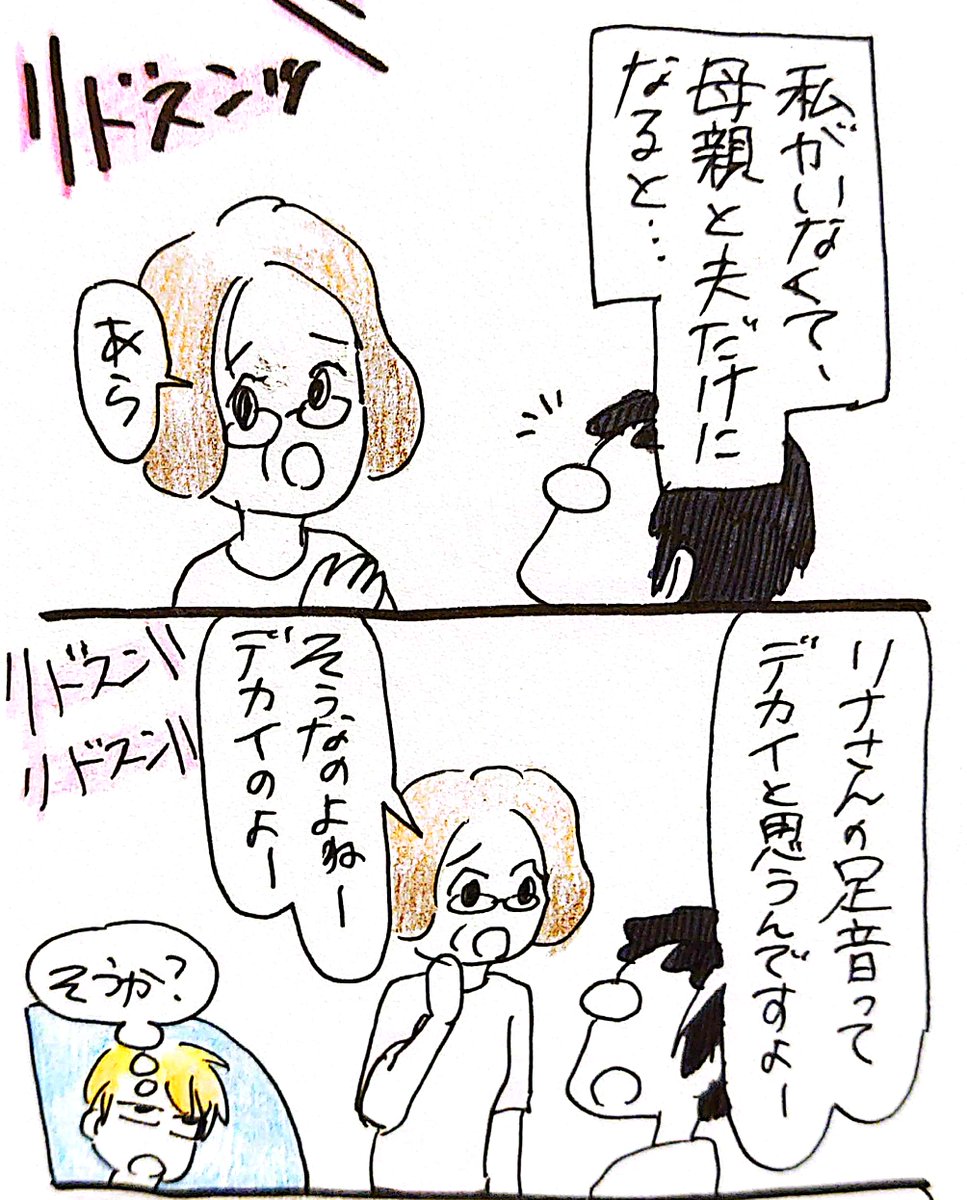 私がいなくて、
母親と夫だけに
なると…
ドスンッ
あら
リナさんの足音って
デカイと思うんですよー
そうなのよねー
デカイのよー
ドスン
ドスン
そうか?